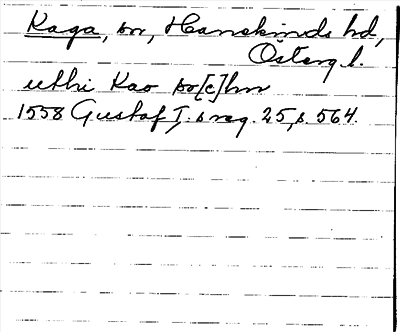 Kaga, sn, Hanekinds hd,
Österg l.
uthi Kao so[c]hn
1558 Gustaf I:s reg. 25, s. 564.